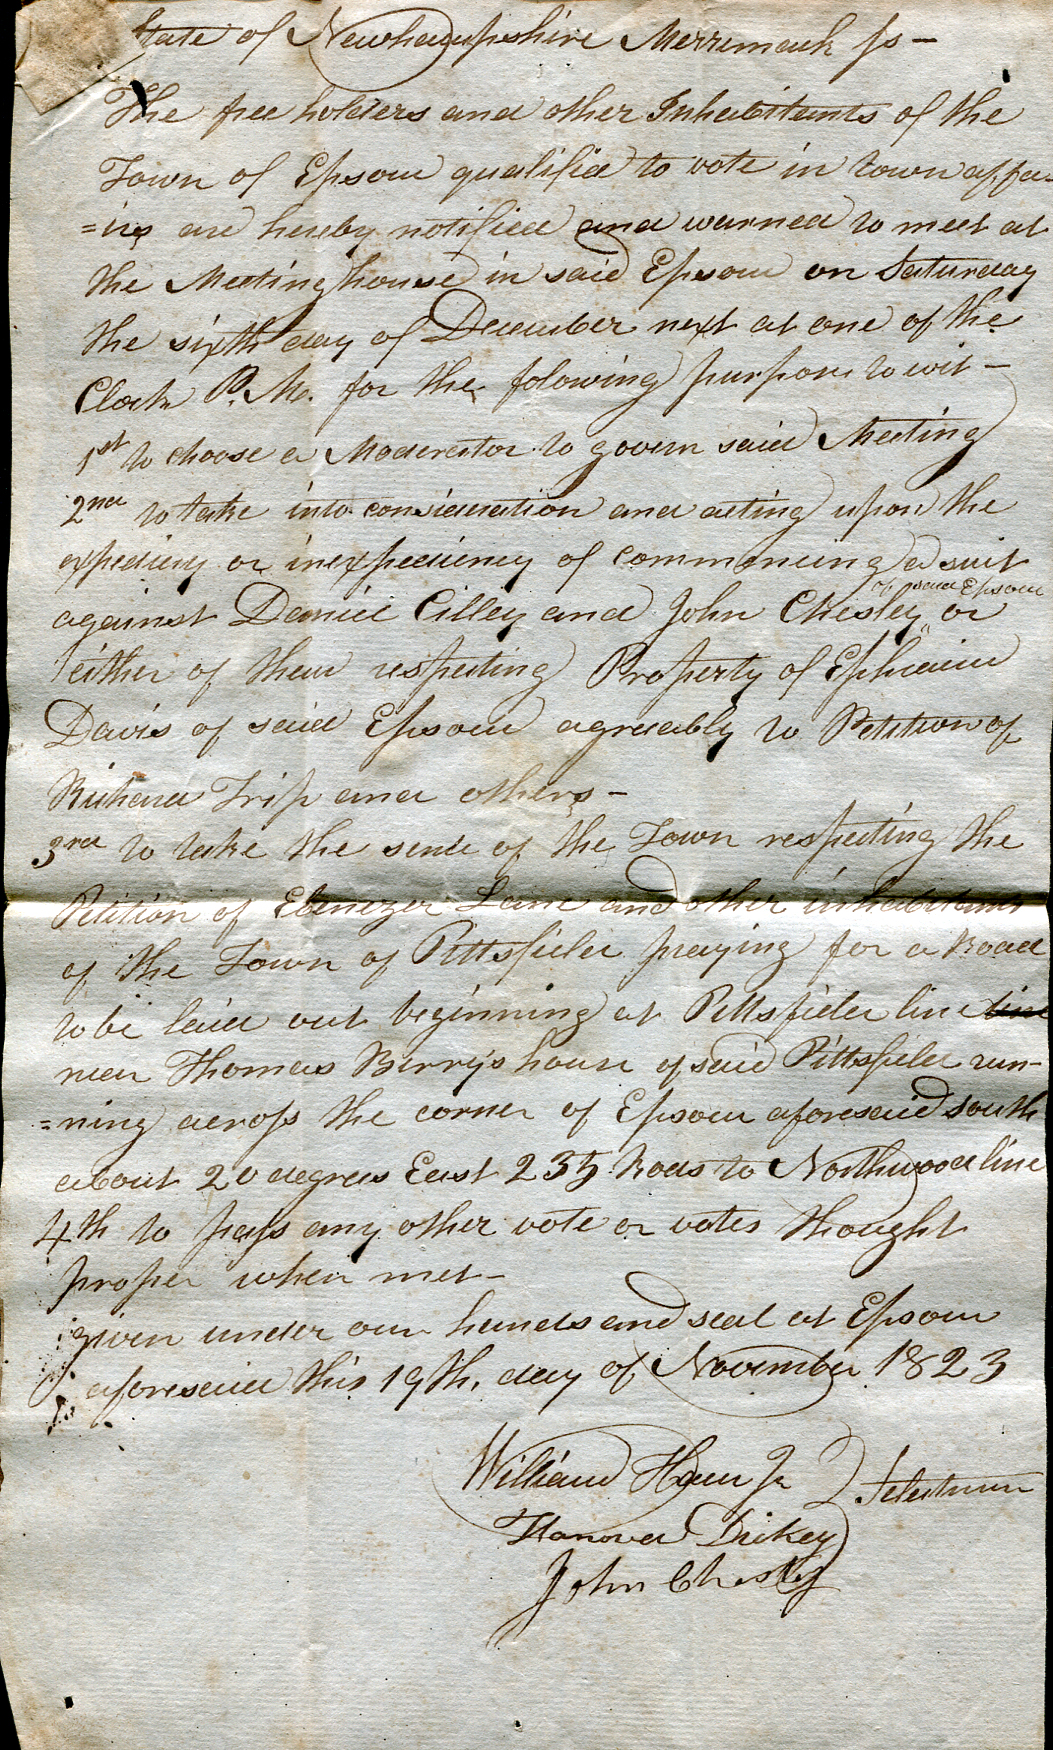 State of Newhampshire Merrimack ss -
The free holders and other Inhabitants of the
Town of Epsom qualified to vote in town affa-
=irs are hereby notified and warned to meet at
the Meeting house in said Epsom on Saturday
the sixth day of December next at one of the
Clock P. M. for the folowing purpose to wit -
1st to choose a Moderator to govern said Meeting
2nd to take into consideration and acting upon the
expediency or inexpediency of commencing a suit
of said Epsom
against Daniel Cilley and John Chesley " or
either of them respecting Property of Ephraim
Davis of said Epsom agreeably to Petition of
Richard Trip and others -
3rd to take the sense of the Town respecting the
Petition of Ebenezer Lane and other inhabitants
of the Town of Pittsfield praying for a Road
to be laid out beginning at Pittsfield line line
near Thomas Berry's house of said Pittsfield run-
=ning across the corner of Epsom aforesaid south
about 20 degrees East 235 Rods to Northwood line
4th to pass any other vote or votes thought
proper when met -
given under our hands and seal at Epsom
aforesaid this 19th. day of November 1823
William Ham Jr } Selectmen
Hanover Dickey
John Chesley